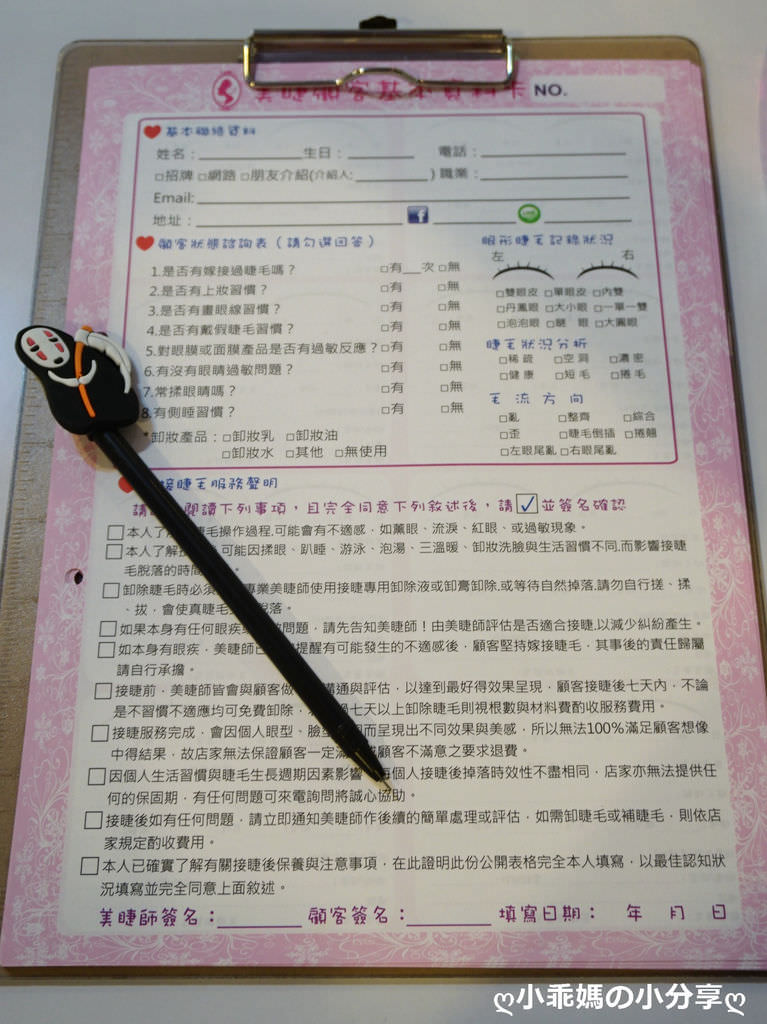 美睫顧客基本資料卡 NO.
基本聯絡資料
姓名：＿＿＿生日：＿＿＿ 電話：＿＿＿
□招牌 □網路 □朋友介紹(介紹人:＿＿＿) 職業：＿＿＿
Email:
地址：
f LINE
顧客狀態諮詢表（請勾選回答）
1.是否有嫁接過睫毛嗎？ □有＿次 □無
2.是否有上妝習慣？ □有 □無
3.是否有畫眼線習慣？ □有 □無
4.是否有戴假睫毛習慣？ □有 □無
5.對眼膜或面膜產品是否有過敏反應？□有 □無
6.有沒有眼睛過敏問題？ □有 □無
7.常揉眼睛嗎？ □有 □無
8.有側睡習慣？ □有 □無
*卸妝產品：□卸妝乳 □卸妝油
□卸妝水 □其他 □無使用
眼形睫毛記錄狀況
左 右
□雙眼皮 □單眼皮 □內雙
□丹鳳眼 □大小眼 □一單一雙
□泡泡眼 □瞇 眼 □大圓眼
睫毛狀況分析
□稀 疏 □空 洞 □濃 密
□健 康 □短 毛 □捲 毛
毛 流 方 向
□亂 □整齊 □綜合
□歪 □睫毛倒插 □捲翹
□左眼尾亂 □右眼尾亂
接睫毛服務聲明
請 閱讀下列事項，且完全同意下列敘述後，請☑並簽名確認
□本人了 毛操作過程.可能會有不適感，如薰眼、流淚、紅眼、或過敏現象。
□本人了解 可能因揉眼、趴睡、游泳、泡湯、三溫暖、卸妝洗臉與生活習慣不同.而影響接睫
毛脫落的時間
□卸除睫毛時必須 專業美睫師使用接睫專用卸除液或卸膏卸除.或等待自然掉落.請勿自行搓、揉
、拔，會使真睫毛 脫落。
□如果本身有任何眼疾 問題，請先告知美睫師！由美睫師評估是否適合接睫.以減少糾紛產生。
□如本身有眼疾，美睫師 提醒有可能發生的不適感後，顧客堅持嫁接睫毛，其事後的責任歸屬
請自行承擔。
□接睫前，美睫師皆會與顧客做 溝通與評估，以達到最好得效果呈現，顧客接睫後七天內，不論
是不習慣不適應均可免費卸除， 過七天以上卸除睫毛則視根數與材料費酌收服務費用。
□接睫服務完成，會因個人眼型、臉 而呈現出不同效果與美感，所以無法100%滿足顧客想像
中得結果，故店家無法保證顧客一定滿 顧客不滿意之要求退費。
□因個人生活習慣與睫毛生長週期因素影響 每個人接睫後掉落時效性不盡相同，店家亦無法提供任
何的保固期，有任何問題可來電詢問將誠心協助。
□接睫後如有任何問題，請立即通知美睫師作後續的簡單處理或評估，如需卸睫毛或補睫毛，則依店
家規定酌收費用。
□本人已確實了解有關接睫後保養與注意事項，在此證明此份公開表格完全本人填寫，以最佳認知狀
況填寫並完全同意上面敘述。
美睫師簽名：＿＿＿ 顧客簽名：＿＿＿ 填寫日期： 年 月 日
ღ小乖媽の小分享ღ